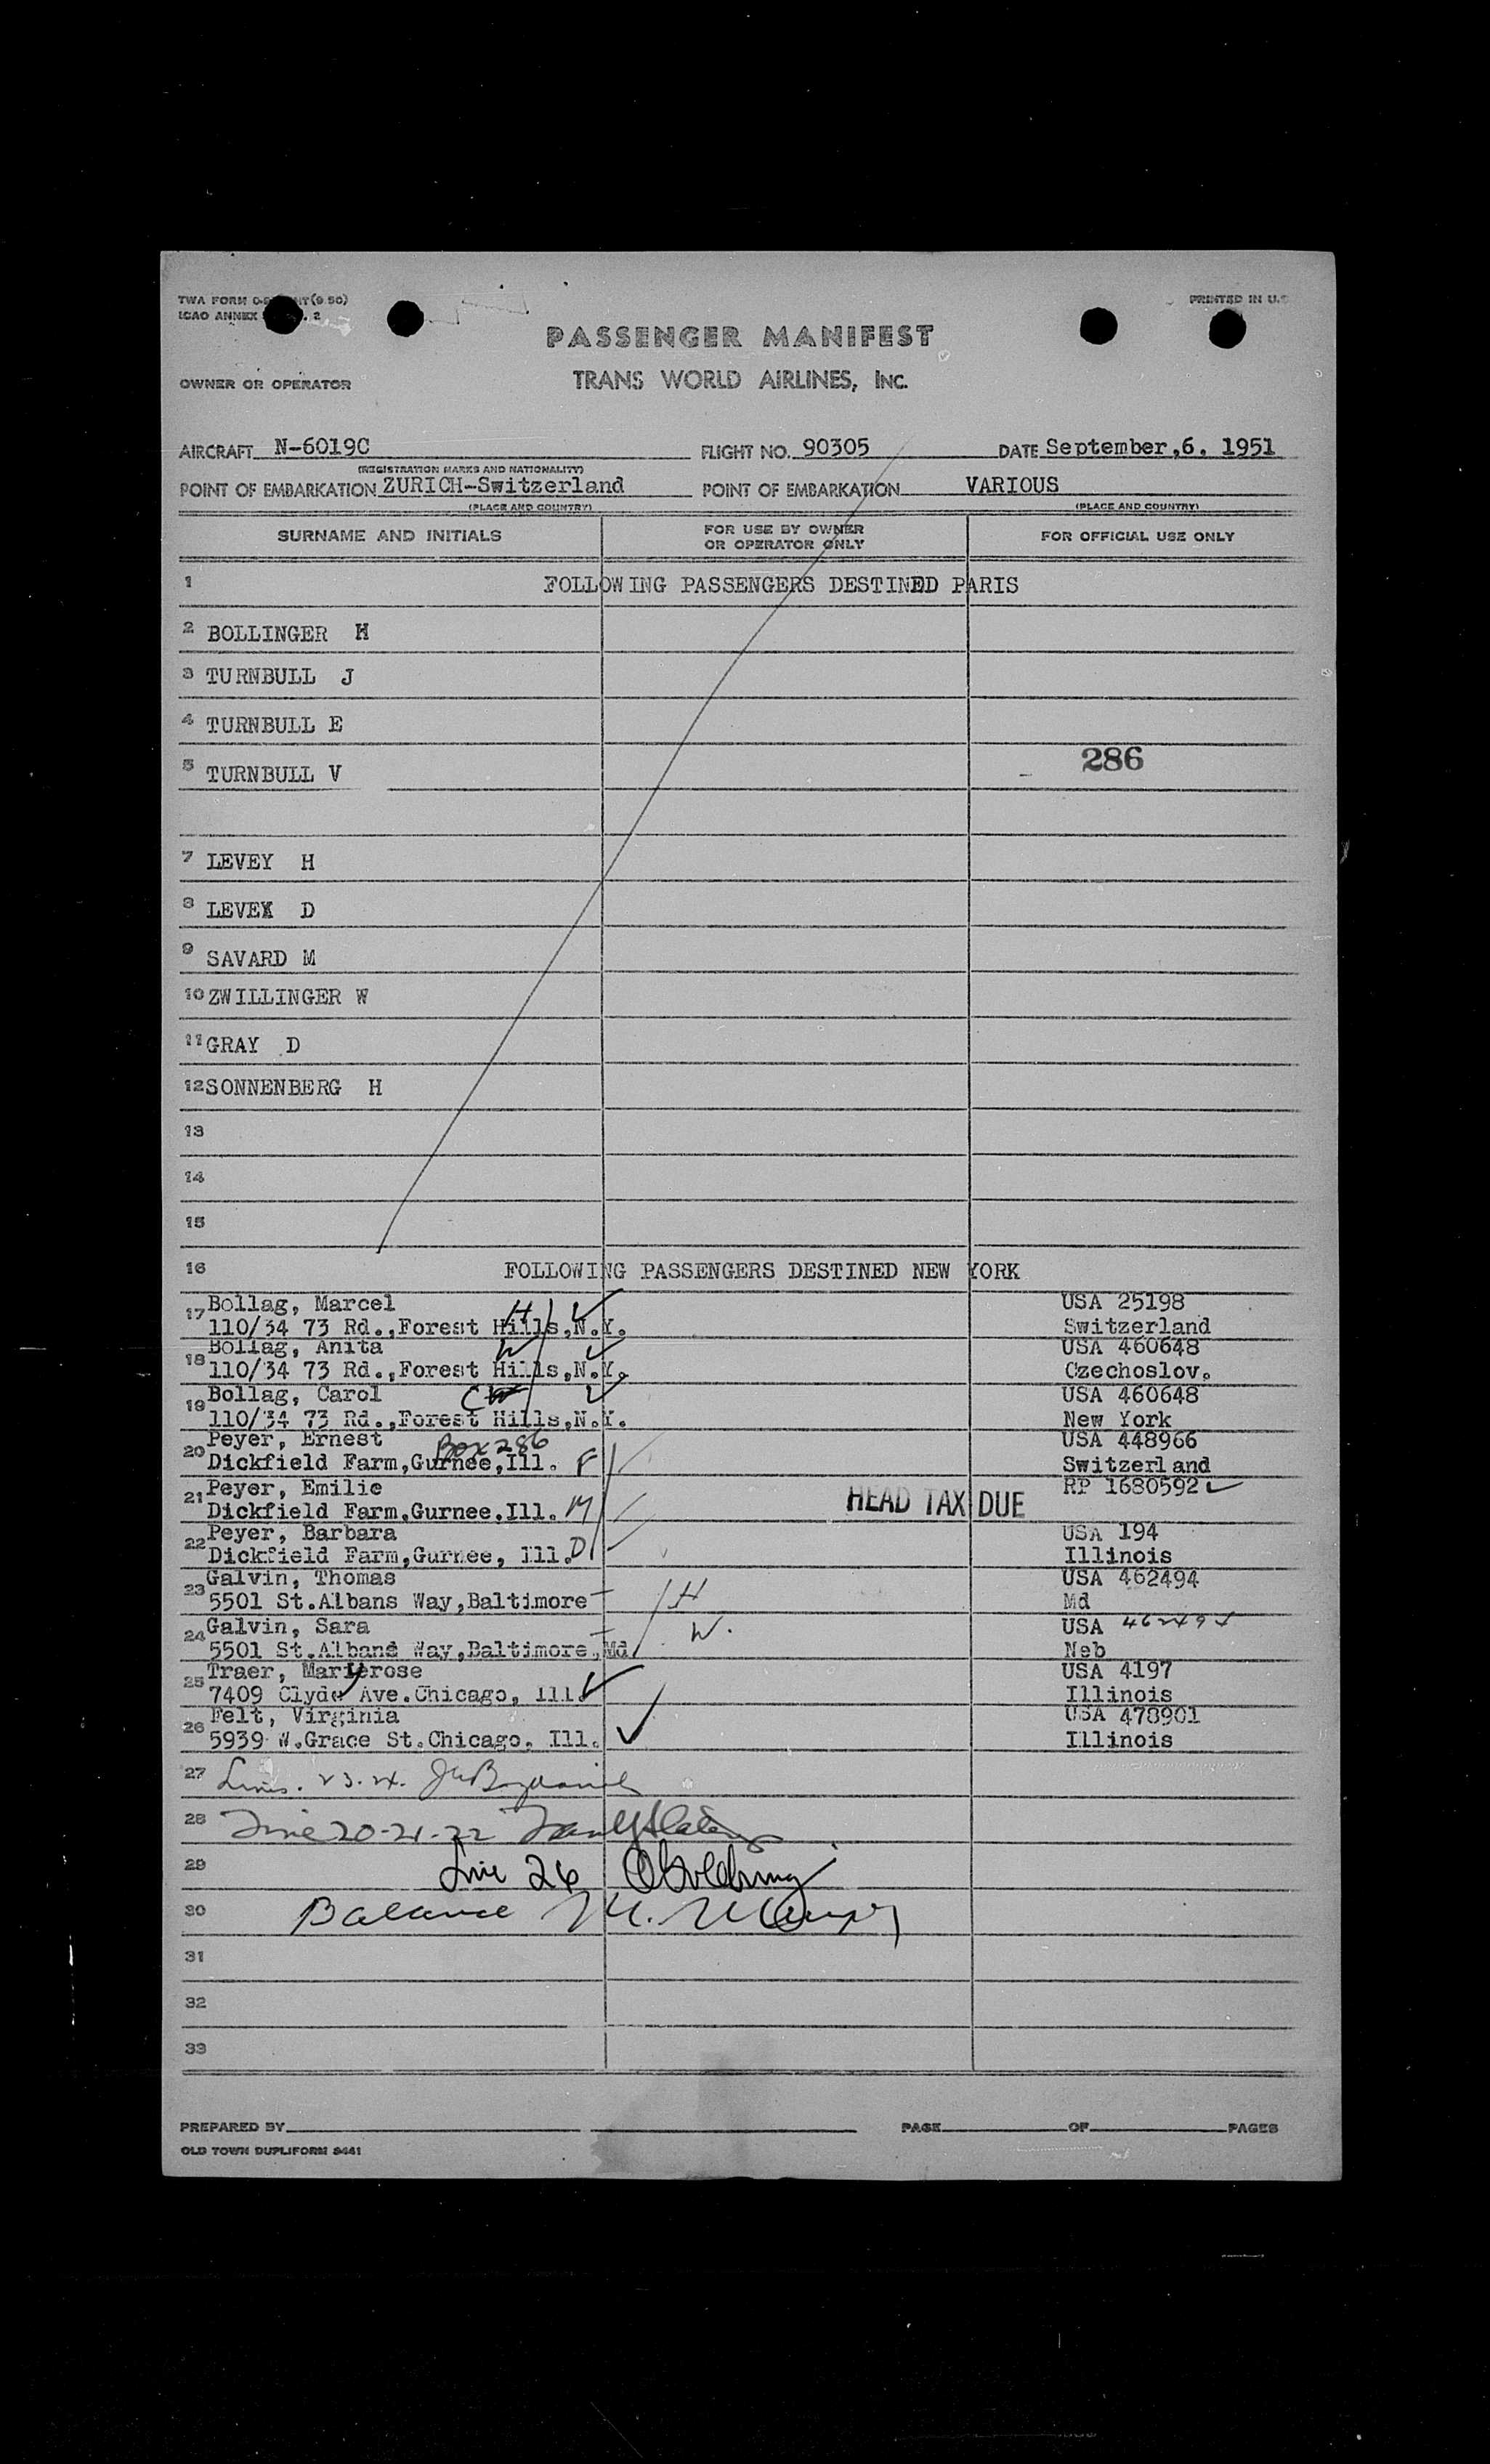 PRINTED IN U.S
PASSENGER MANIFEST
OWNER OR OPERATOR TRANS WORLD AIRLINES, INC.
AIRCRAFT N-6019C FLIGHT NO. 90305 DATE September,6. 1951
(REGISTRATION MARKS AND NATIONALITY)
POINT OF EMBARKATION ZURICH-Switzerland POINT OF EMBARKATION VARIOUS
(PLACE AND COUNTRY) (PLACE AND COUNTRY)
SURNAME AND INITIALS FOR USE BY OWNER OR OPERATOR ONLY FOR OFFICIAL USE ONLY
1 FOLLOWING PASSENGERS DESTINED PARIS
2 BOLLINGER H
3 TURNBULL J
4 TURNBULL E
5 TURNBULL V 286
7 LEVEY H
8 LEVEY D
9 SAVARD M
10 ZWILLINGER W
11 GRAY D
12 SONNENBERG H
13
14
15
16 FOLLOWING PASSENGERS DESTINED NEW YORK
17 Bollag, Marcel H USA 25198
110/34 73 Rd.,Forest Hills,N.Y. Switzerland
18 Bollag, Anita W USA 460648
110/34 73 Rd.,Forest Hills,N.Y. Czechoslov.
19 Bollag, Carol C USA 460648
110/34 73 Rd.,Forest Hills,N.Y. New York
20 Peyer, Ernest Box 286 USA 448966
Dickfield Farm,Gurnee,Ill. F Switzerland
21 Peyer, Emilie RP 1680592
Dickfield Farm,Gurnee.Ill. M HEAD TAX DUE
22 Peyer, Barbara USA 194
Dickfield Farm,Gurnee, Ill. D Illinois
23 Galvin, Thomas H USA 462494
5501 St.Albans Way,Baltimore Md
24 Galvin, Sara W. USA 462494
5501 St.Albans Way,Baltimore,Md Neb
25 Traer, Maryrose USA 4197
7409 Clyde Ave.Chicago, Ill. Illinois
26 Felt, Virginia USA 478901
5939 W.Grace St.Chicago. Ill. Illinois
27 Lines. 23.24.
28 Line 20-21-22
29 Line 26
30 Balance M.
31
32
33
PREPARED BY PAGE OF PAGES
OLD TOWN DUPLIFORM 8441